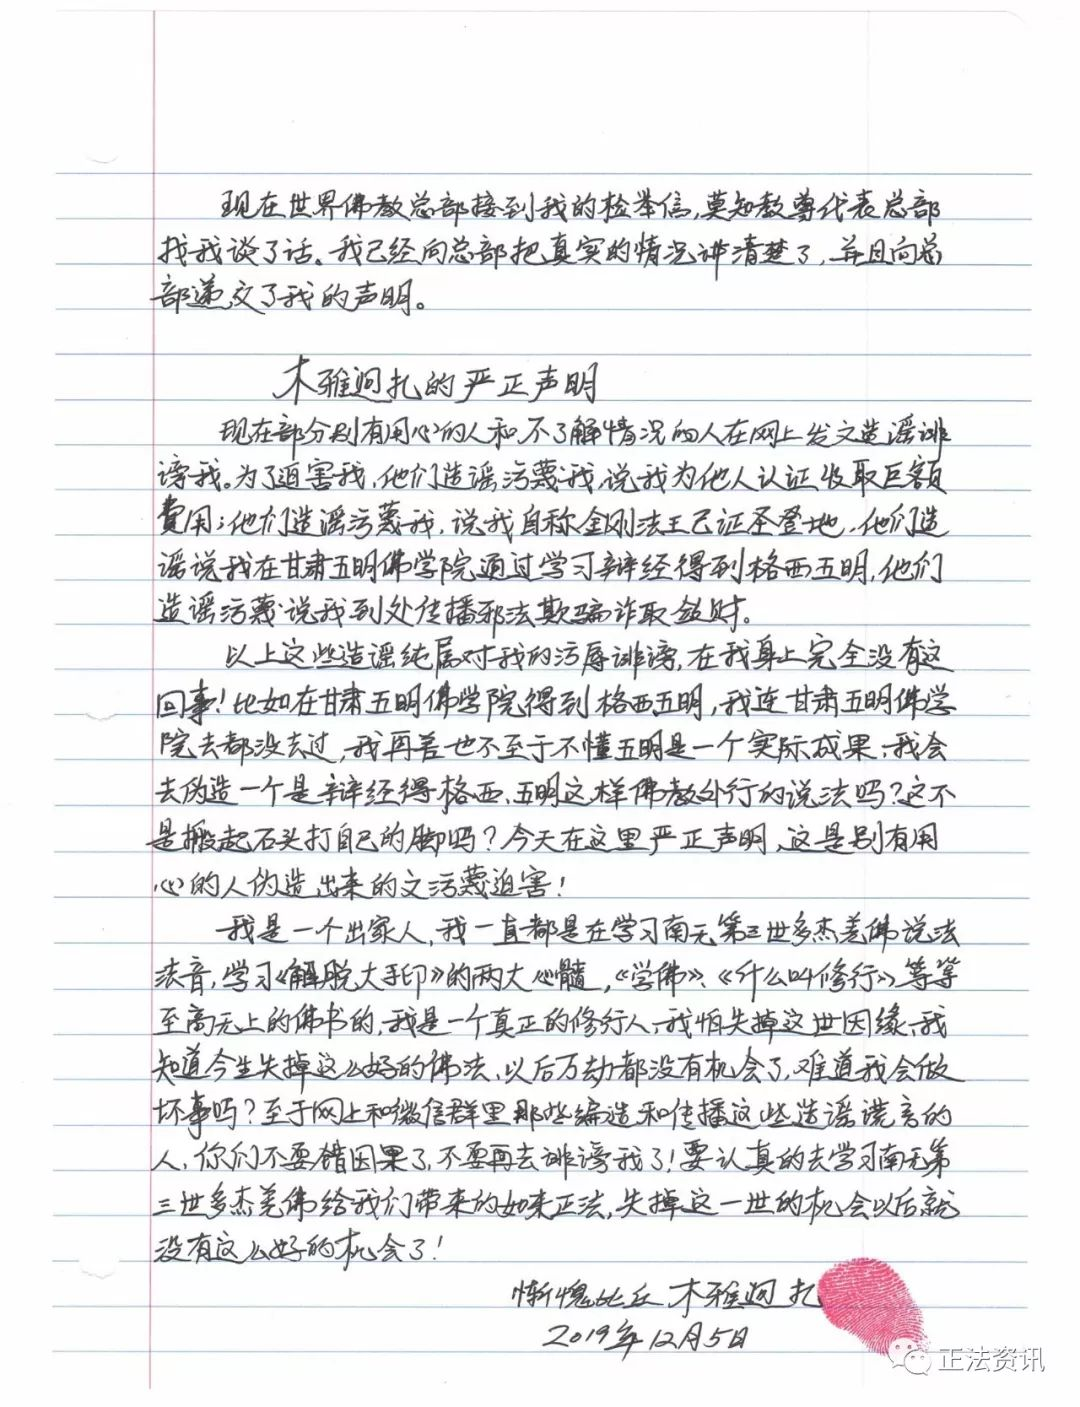 现在世界佛教总部接到我的检举信,莫知教尊代表总部
找我谈了话。我已经向总部把真实的情况讲清楚了,并且向总
部递交了我的声明。
木雅迥扎的严正声明
现在部分别有用心的人和不了解情况的人在网上发文造谣诽
谤我。为了迫害我,他们造谣污蔑我,说我为他人认证收取巨额
費用;他们造谣污蔑我,说我自称金刚法王己证圣登地,他们造
谣说我在甘肃五明佛学院通过学习辩经得到格西五明,他们
造谣污蔑说我到处传播邪法欺骗诈取敛财。
以上这些造谣纯属对我的污辱诽谤,在我身上完全没有这
回事!比如在甘肃五明佛学院得到格西五明,我连甘肃五明佛学
院去都没去过,我再差也不至于不懂五明是一个实际成果,我会
去伪造一个是辩经得格西、五明这样佛教外行的说法吗?这不
是搬起石头打自己的脚吗?今天在这里严正声明,这是别有用
心的人伪造出来的文污蔑迫害!
我是一个出家人,我一直都是在学习南无第三世多杰羌佛说法
法音,学习《解脱大手印》的两大心髓,《学佛》、《什么叫修行》等等
至高无上的佛书的,我是一个真正的修行人,我怕失掉这世因缘,我
知道今生失掉这么好的佛法,以后万劫都没有机会了,难道我会做
坏事吗?至于网上和微信群里那些编造和传播这些造谣谎言的
人,你们不要错因果了,不要再去诽谤我了!要认真的去学习南无第
三世多杰羌佛给我们带来的如来正法,失掉这一世的机会以后就
没有这么好的机会了!
惭愧比丘 木雅迥扎
2019年12月5日
正法资讯